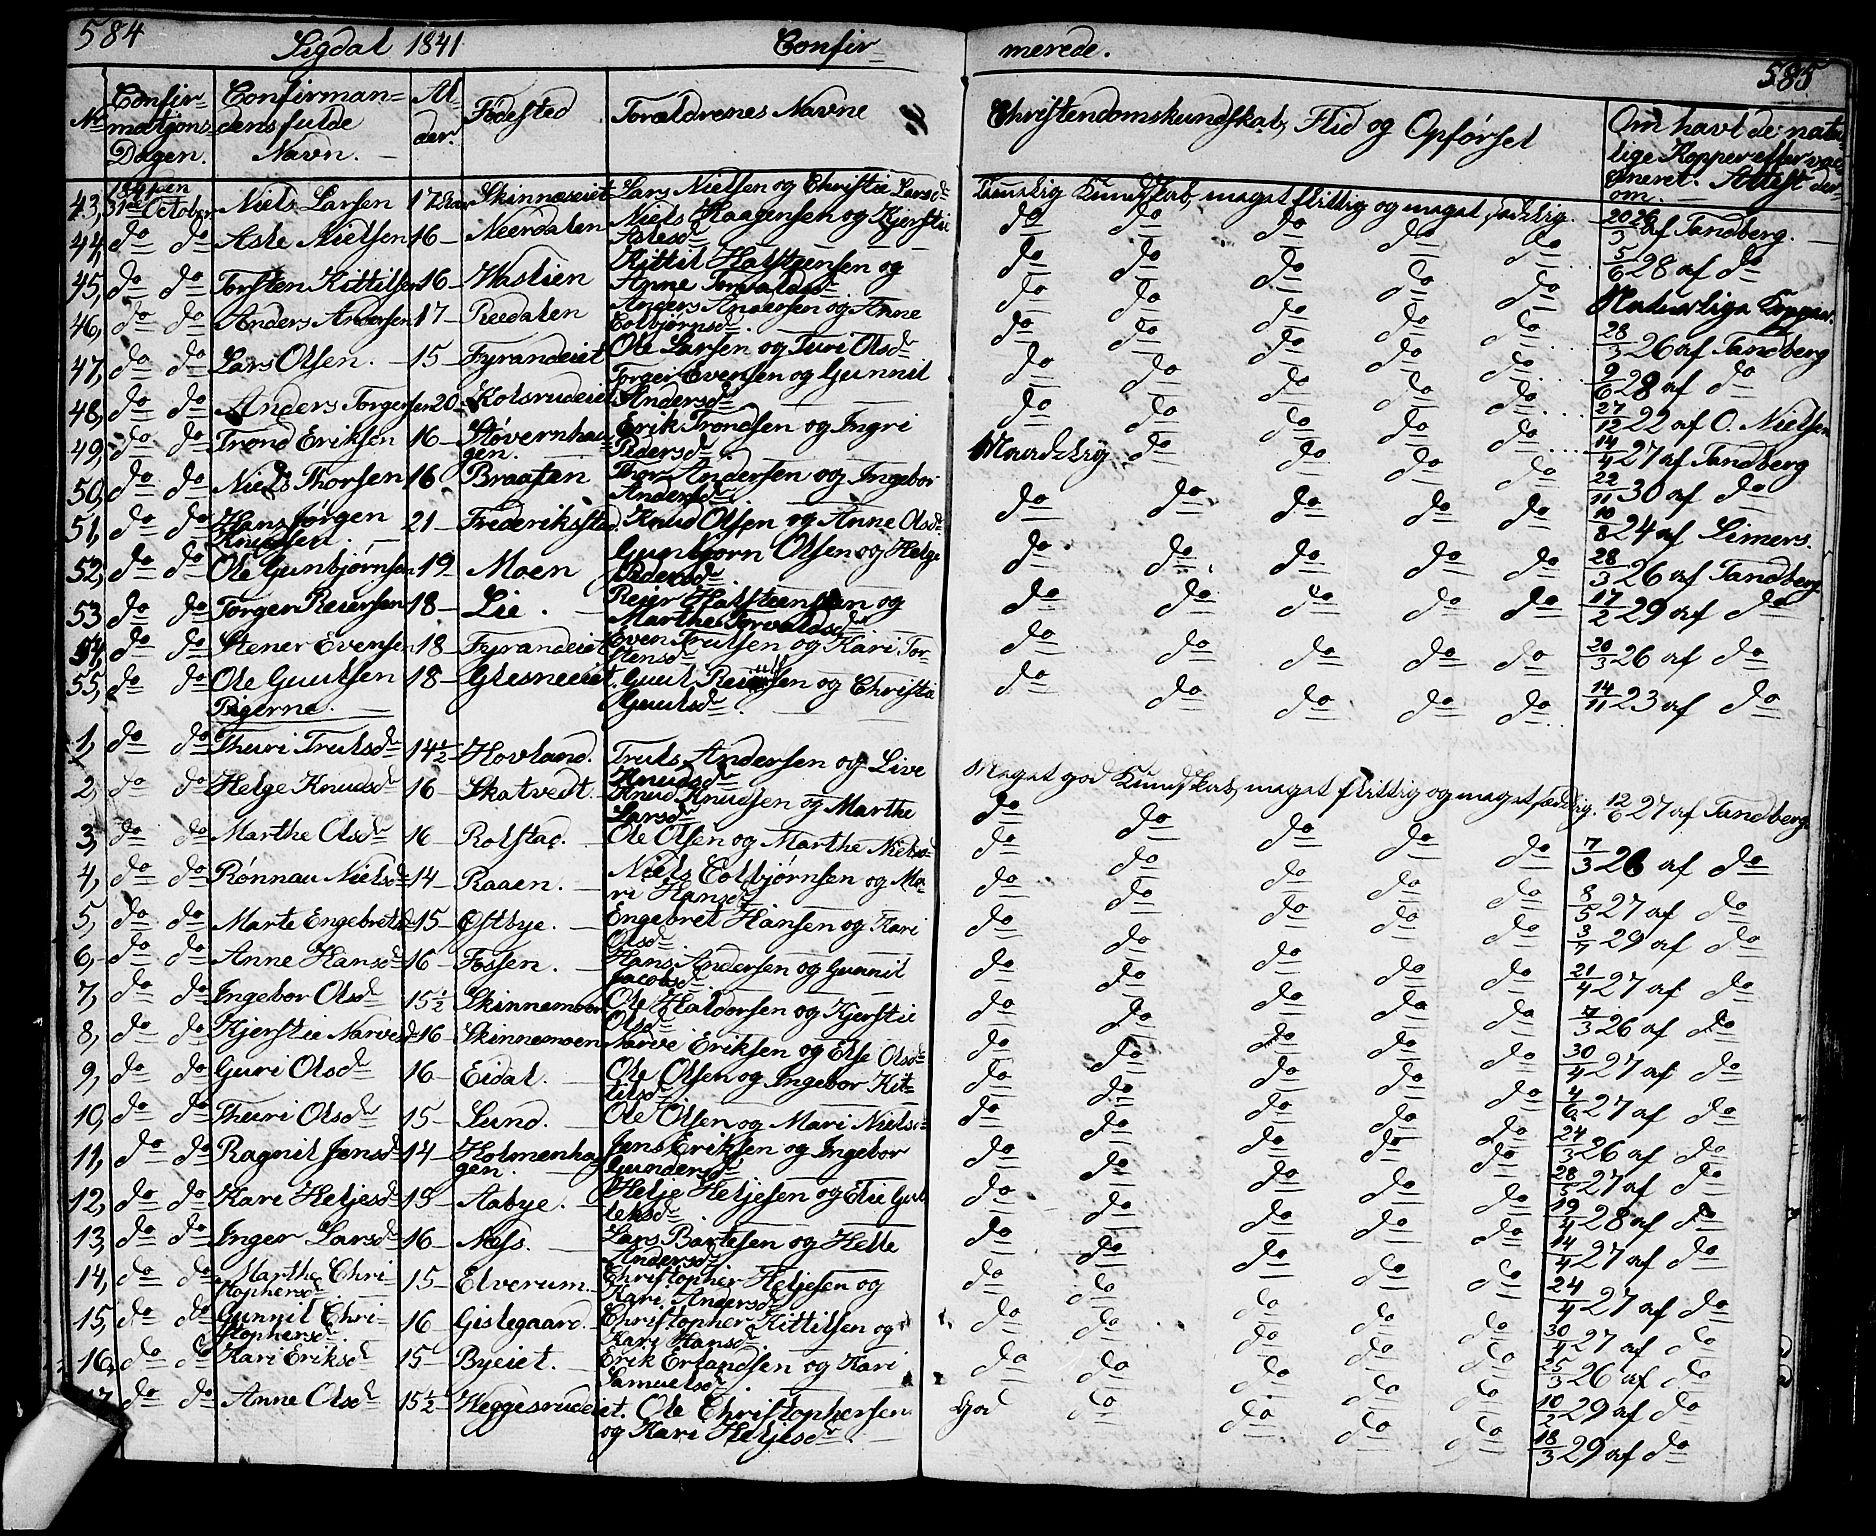 584 Sigdal 1841 Confir-
merede. 585
No Confir-mations Dagen. Confirman-dens fulde Navn. Al-der. Fødested Forældrenes Navne
Christendomskundskab, Flid og Opførsel Om havt de natu-lige Kopper eller vac-cineret. Attest der-om.
43, 1841 den 31te October Niels Larsen 17 Skinnæseiet Lars Nielsen og Christie Larsdr Temmelig Kundskab, meget flittig og meget sædelig. 20/3 26 af Tandberg.
44, do do Asle Nielsen 16 Neerdalen Niels Haagensen og Kjerstie Aslesdr do do do do do 5/6 28 af do
45, do do Torsten Kittilsen 16 Hastien Kittil Halsteensen og Anne Torvaldsdr do do do do do Naturlige Kopper.
46, do do Anders Andersen 17 Reedalen Anders Andersen og Anne Eolbjørnsdr do do do do do 28/3 26 af Tandberg
47, do do Lars Olsen. 15 Fyrandeiet Ole Larsen og Turi Olsdr do do do do do 9/6 28 af do
48, do do Anders Torgersen 20 Kolsrudeiet Torger Evensen og Gunnil Andersdr do do do do do 27/12 22 af O. Nielsen
49, do do Trond Eriksen 16 Støvernhaugen. Erik Trondsen og Ingri Pedersdr do do do do do 14/4 27 af Tandberg
50, do do Niels Thorsen 16 Braaten Thor Andersen og Ingebor Andersdr Maadelig do do do do 22/11 30 af do
51, do do Hans Jørgen Knudsen. 21 Frederiksstad. Knud Olsen og Anne Olsdr do do do do do 10/8 24 af Simers.
52, do do Ole Gunbjørnsen 19 Moen Gunbjørn Olsen og Helge Pedersdr do do do do do 28/3 26 af Tandberg
53 do do Torger Reiersen 18 Lie. Reier Halsteensen og Marthe Torvaldsdr do do do do do 17/2 29 af do
54, do do Stener Evensen 18 Fyrandeiet Even Trulsen og Kari Tor-stensdr do do do do do 20/3 26 af do
55, do do Ole Guulsen 18 Glesneeiet. Guul Reiersen og Christie Guulsdr do do do do do 14/11 23 af do
Pigerne.
1, do do Thuri Trulsdr 14½ Hovland. Truls Andersen og Live Knudsdr Meget god Kundskab, meget flittig og meget sædelig. 12/6 27 af Tandberg
2, do do Helge Knudsdr 16 Skatvedt. Knud Knudsen og Marthe Larsdr do do do do do 7/3 26 af do
3, do do Marthe Olsdr 16 Rolstad. Ole Olsen og Marthe Nielsdr do do do do do 8/5 27 af do
4, do do Rønnau Nielsdr 14 Raaen. Niels Eolbjørnsen og Ma-ri Hansdr do do do do do 3/4 29 af do
5, do do Marte Engebretsdr 15 Østbye. Engebret Hansen og Kari Olsdr do do do do do 21/4 27 af do
6, do do Anne Hansdr 16 Fossen. Hans Andersen og Gunnil Jacobsdr do do do do do 7/3 26 af do
7, do do Ingebor Olsdr 15½ Skinnemoen Ole Haldorsen og Kjerstie Olsdr do do do do do 30/4 27 af do
8, do do Kjerstie Narvesdr 16 Skinnemoen Narve Eriksen og Else Olsdr do do do do do 4/6 27 af do
9, do do Guri Olsdr 16 Eidal. Ole Olsen og Ingebor Kit-tilsdr do do do do do 24/3 26 af do
10, do do Thuri Olsdr 15 Lund. Ole Olsen og Mari Nielsdr do do do do do 28/5 27 af do
11, do do Ragnil Jensdr 14 Holmenhaugen. Jens Eriksen og Ingebor Gundersdr do do do do do 19/4 28 af do
12, do do Kari Heljesdr 15 Aabye. Helje Heljesen og Elie Gul-leksdr do do do do do 14/4 27 af do
13, do do Inger Larsdr 16 Næss. Lars Bartesen og Helle Andersdr do do do do do 24/4 27 af do
14, do do Marthe Chri-stophersdr 15 Elverum. Christopher Heljesen og Kari Andersdr do do do do do 30/4 27 af do
15, do do Gunnil Chri-stophersdr 16 Gislegaard. Christopher Kittilsen og Kari Hansdr do do do do do 25/3 26 af do
16, do do Kari Eriksdr 15 Byeiet. Erik Erlandsen og Kari Samuelsdr do do do do do 10/2 29 af do
17 do do Anne Olsdr 15½ Heggesrudeiet. Ole Christophersen og Kari Heljesdr God do do do do 18/3 29 af do